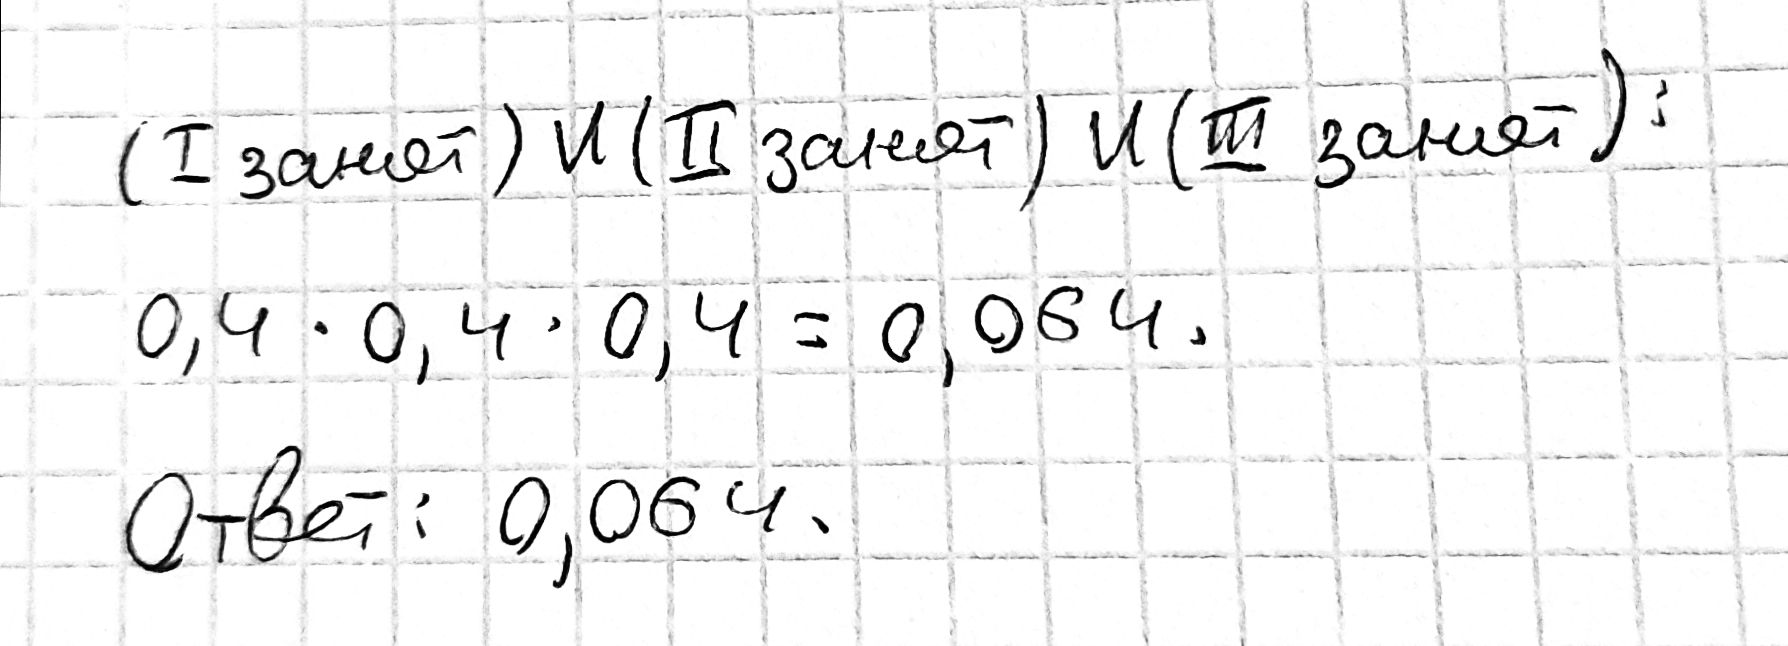 (I занят) И (II занят) И (III занят):
0,4 · 0,4 · 0,4 = 0,064.
Ответ: 0,064.